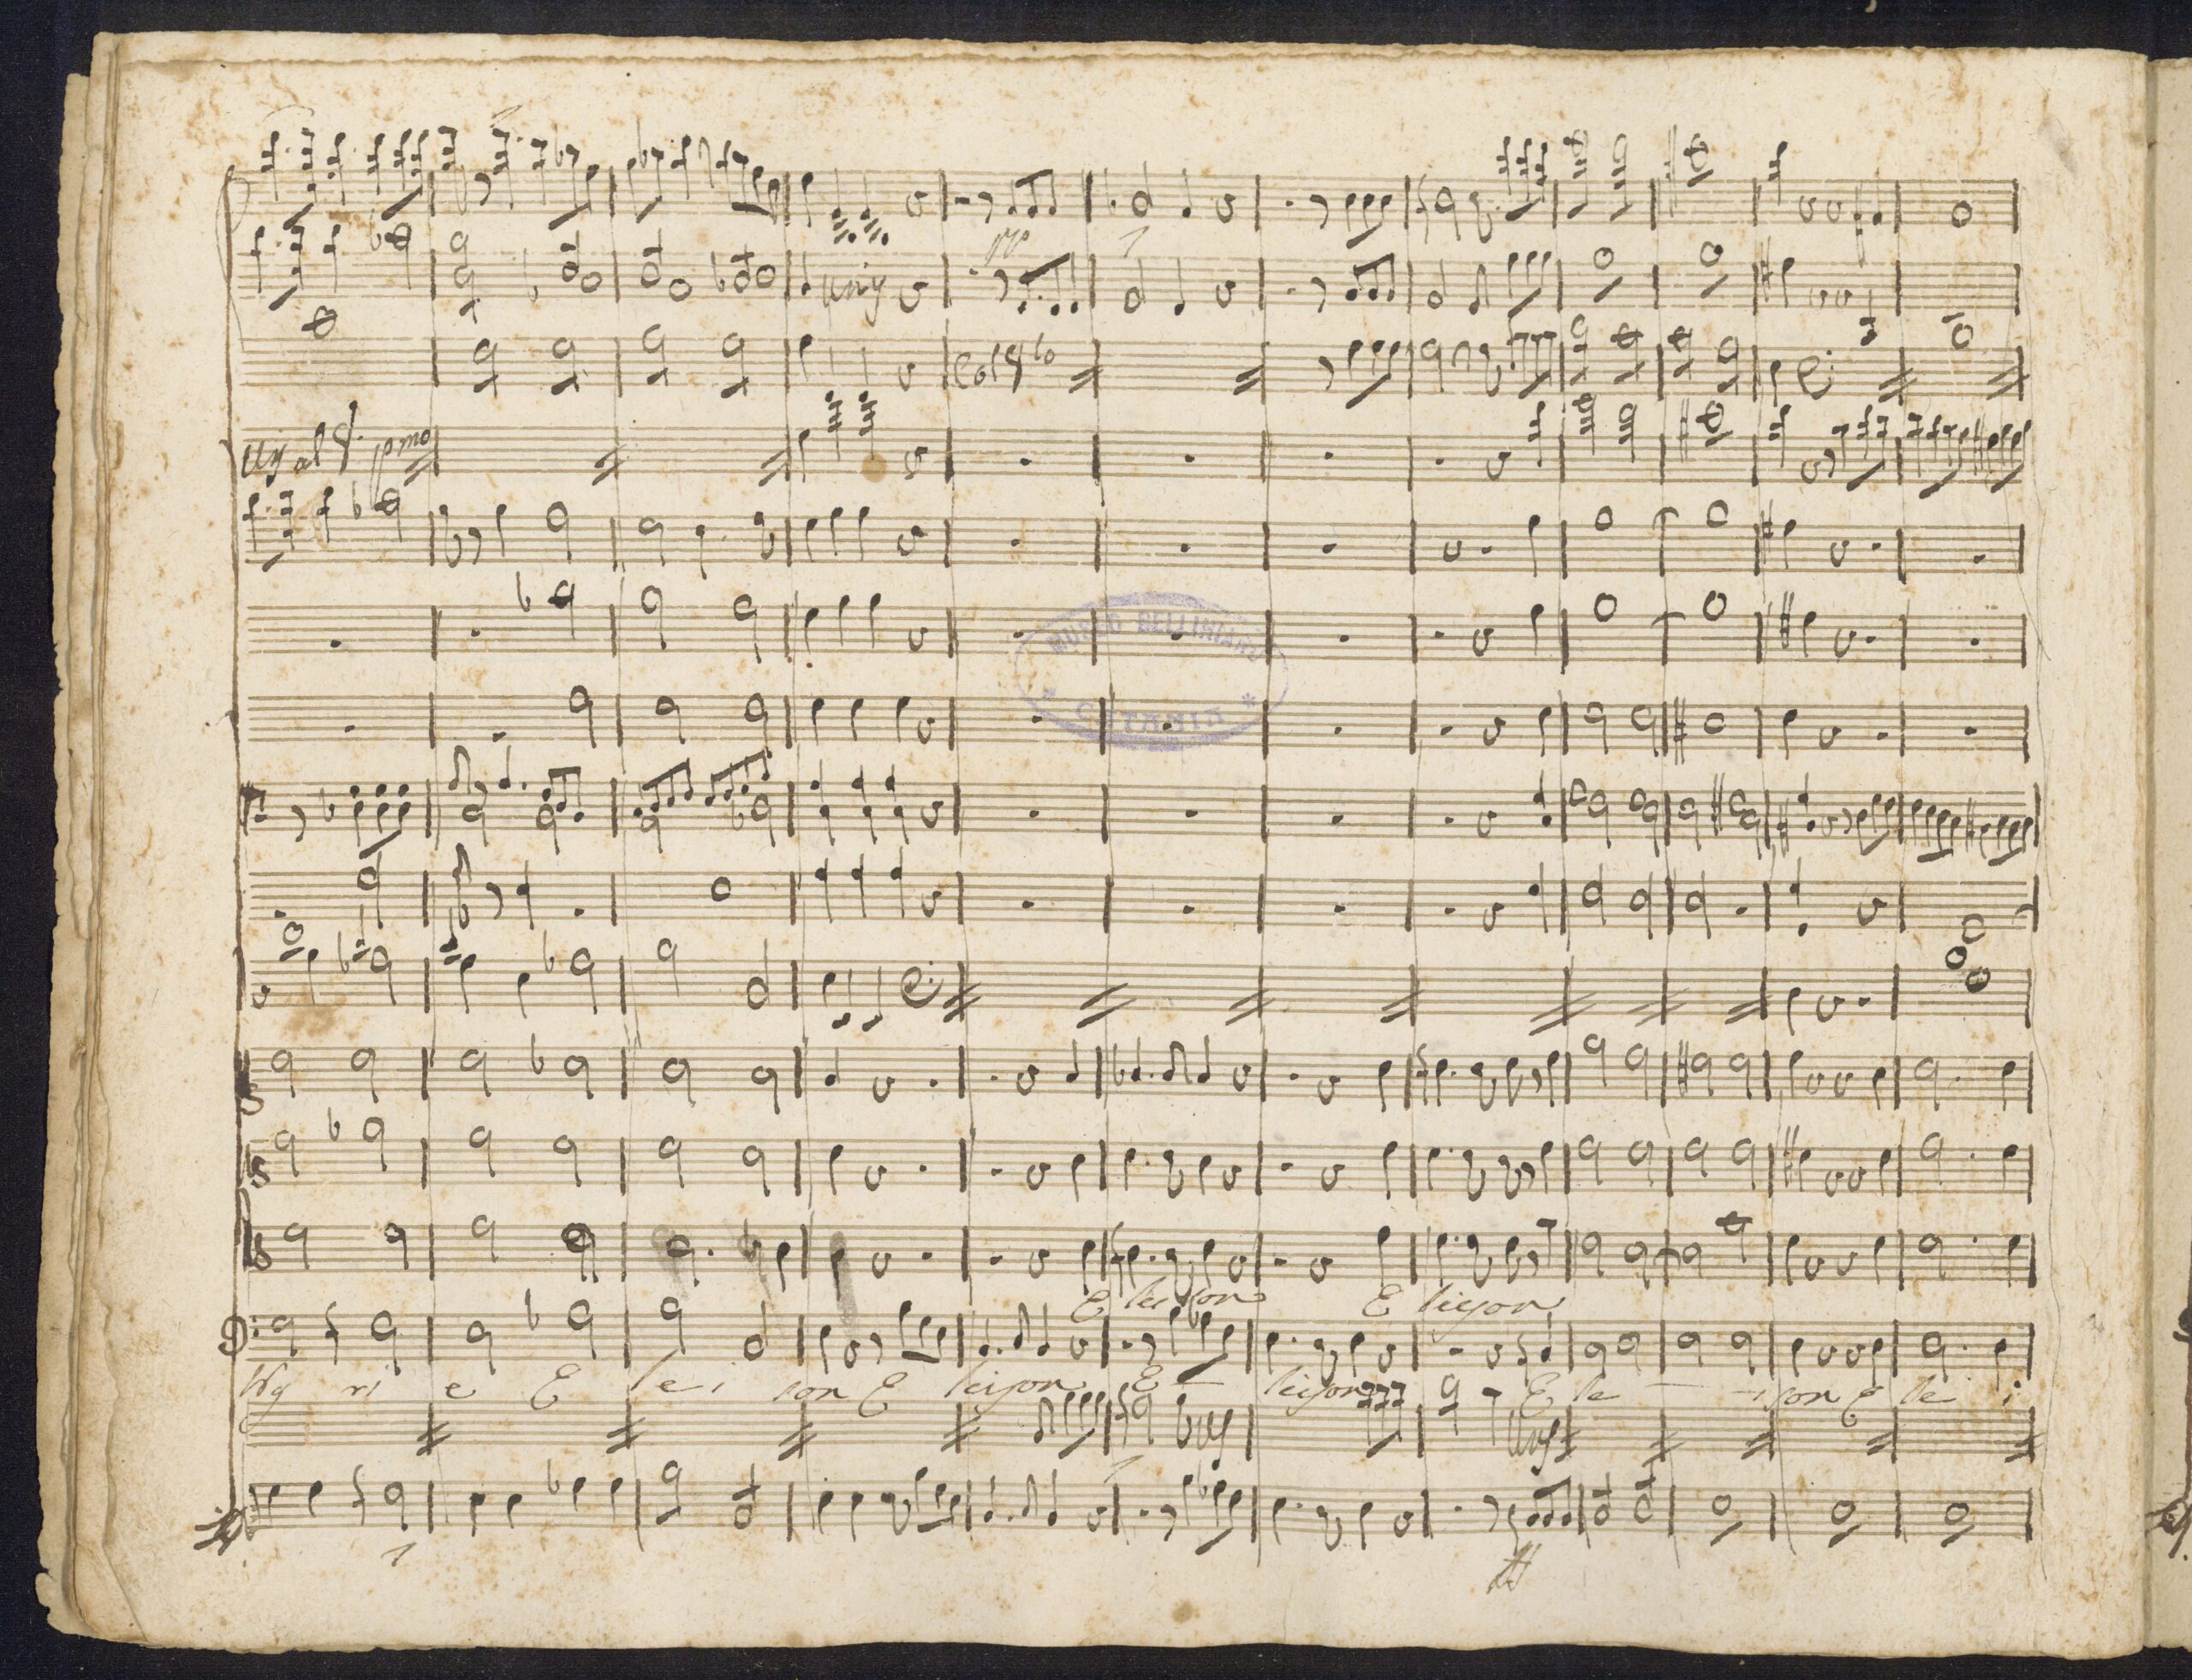 unis
pp
Col V.lo
Unis al V. p.mo
MUSEO BELLINIANO
* CATANIA *
E leison E leison
Ky ri e E lei son E leison E leison E le i son E le i
unis
unis